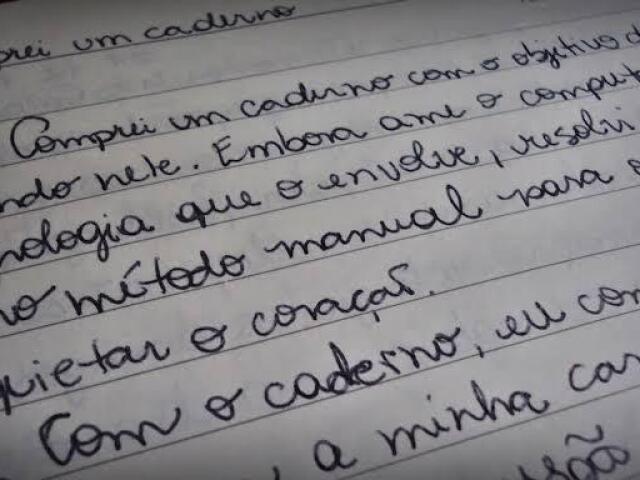 rei um caderno
Comprei um caderno com o objetivo d
ndo nele. Embora ame o computa
nologia que o envolve, resolvi
no método manual para
quietar o coração.
Com o caderno, eu com
, a minha car
são